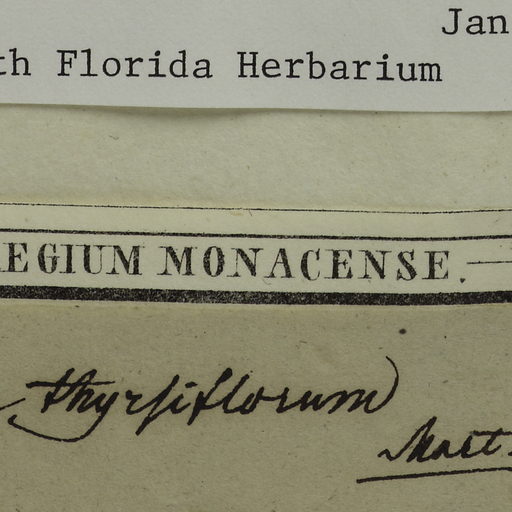 Jan
th Florida Herbarium
REGIUM MONACENSE.
thyrsiflorum
Mart.